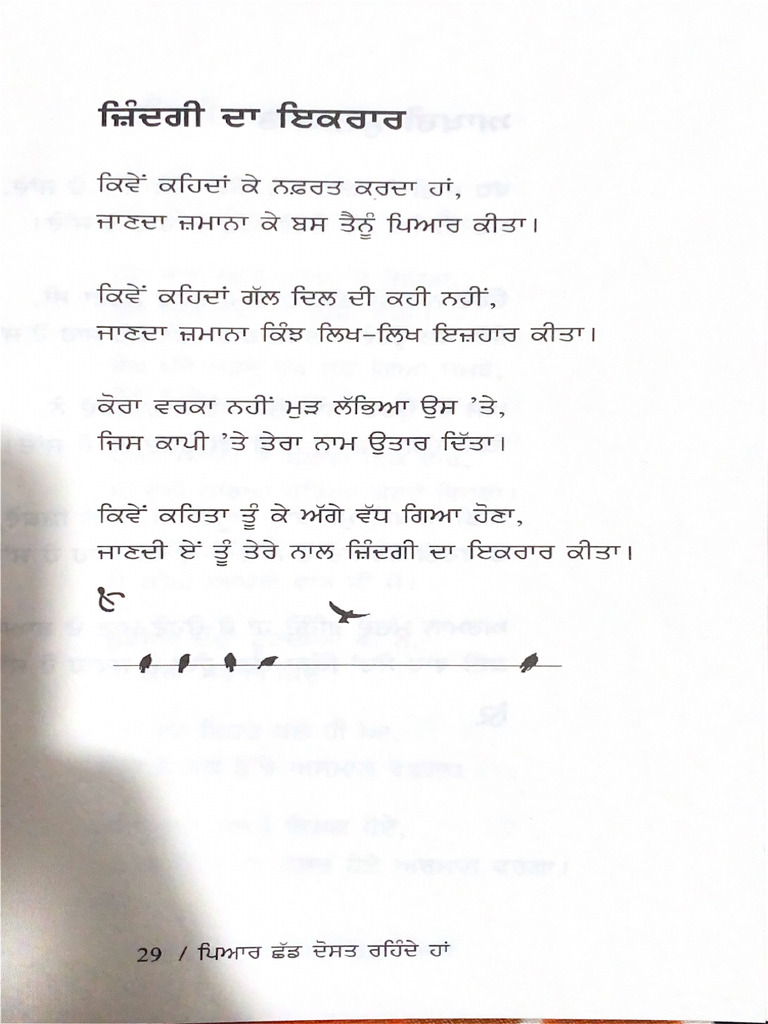 ਜ਼ਿੰਦਗੀ ਦਾ ਇਕਰਾਰ
ਕਿਵੇਂ ਕਹਿਦਾਂ ਕੇ ਨਫ਼ਰਤ ਕਰਦਾ ਹਾਂ,
ਜਾਣਦਾ ਜ਼ਮਾਨਾ ਕੇ ਬਸ ਤੈਨੂੰ ਪਿਆਰ ਕੀਤਾ।
ਕਿਵੇਂ ਕਹਿਦਾਂ ਗੱਲ ਦਿਲ ਦੀ ਕਹੀ ਨਹੀਂ,
ਜਾਣਦਾ ਜ਼ਮਾਨਾ ਕਿੰਝ ਲਿਖ-ਲਿਖ ਇਜ਼ਹਾਰ ਕੀਤਾ।
ਕੋਰਾ ਵਰਕਾ ਨਹੀਂ ਮੁੜ ਲੱਭਿਆ ਉਸ ’ਤੇ,
ਜਿਸ ਕਾਪੀ ’ਤੇ ਤੇਰਾ ਨਾਮ ਉਤਾਰ ਦਿੱਤਾ।
ਕਿਵੇਂ ਕਹਿਤਾ ਤੂੰ ਕੇ ਅੱਗੇ ਵੱਧ ਗਿਆ ਹੋਣਾ,
ਜਾਣਦੀ ਏਂ ਤੂੰ ਤੇਰੇ ਨਾਲ ਜ਼ਿੰਦਗੀ ਦਾ ਇਕਰਾਰ ਕੀਤਾ।
29 / ਪਿਆਰ ਛੱਡ ਦੋਸਤ ਰਹਿੰਦੇ ਹਾਂ